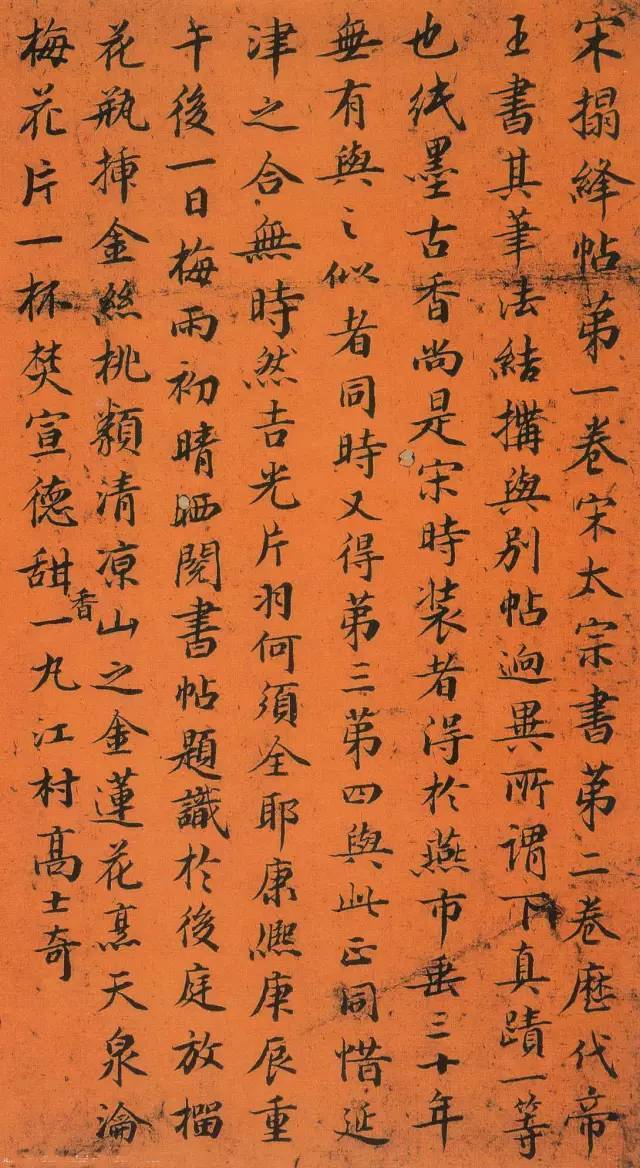 宋搨絳帖第一卷宋太宗書第二卷歷代帝
王書其筆法結搆與别帖逈異所謂下真蹟一等
也紙墨古香尚是宋時装者得於燕市垂三十年
無有與之似者同時又得第三第四與此正同惜延
津之合無時然吉光片羽何須全耶康熙庚辰重
午後一日梅雨初晴晒閱書帖題識於後庭放榴
花瓶揷金絲桃類清涼山之金蓮花烹天泉瀹
梅花片一杯焚宣德甜香一丸江村高士奇